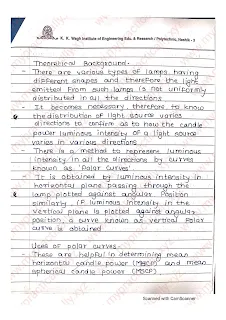 K. K. Wagh Institute of Engineering Edu. & Research / Polytechnic, Nashik - 3
Theoretical Background-
- There are various types of lamps having
different shapes and therefore the light
emitted from such lamps is not uniformly
distributed in all the directions
- It becomes necessary, therefore to know
the distribution of light source varies
directions to confirm as to how the candle
power luminous intensity of a light source
varies in various directions.
- There is a method to represent luminous
intensity in all the directions by curves
known as 'Polar curves'.
- It is obtained by luminous intensity in
horizontal plane passing through the
lamp plotted against angular position
similarly, if luminous intensity in the
vertical plane is plotted against angular
position, a curve known as vertical Polar
curve is obtained
Uses of polar curves-
- These are helpful in determining mean
horizontal candle power (MHCP) and mean
spherical candle power (MSCP)
Scanned with CamScanner